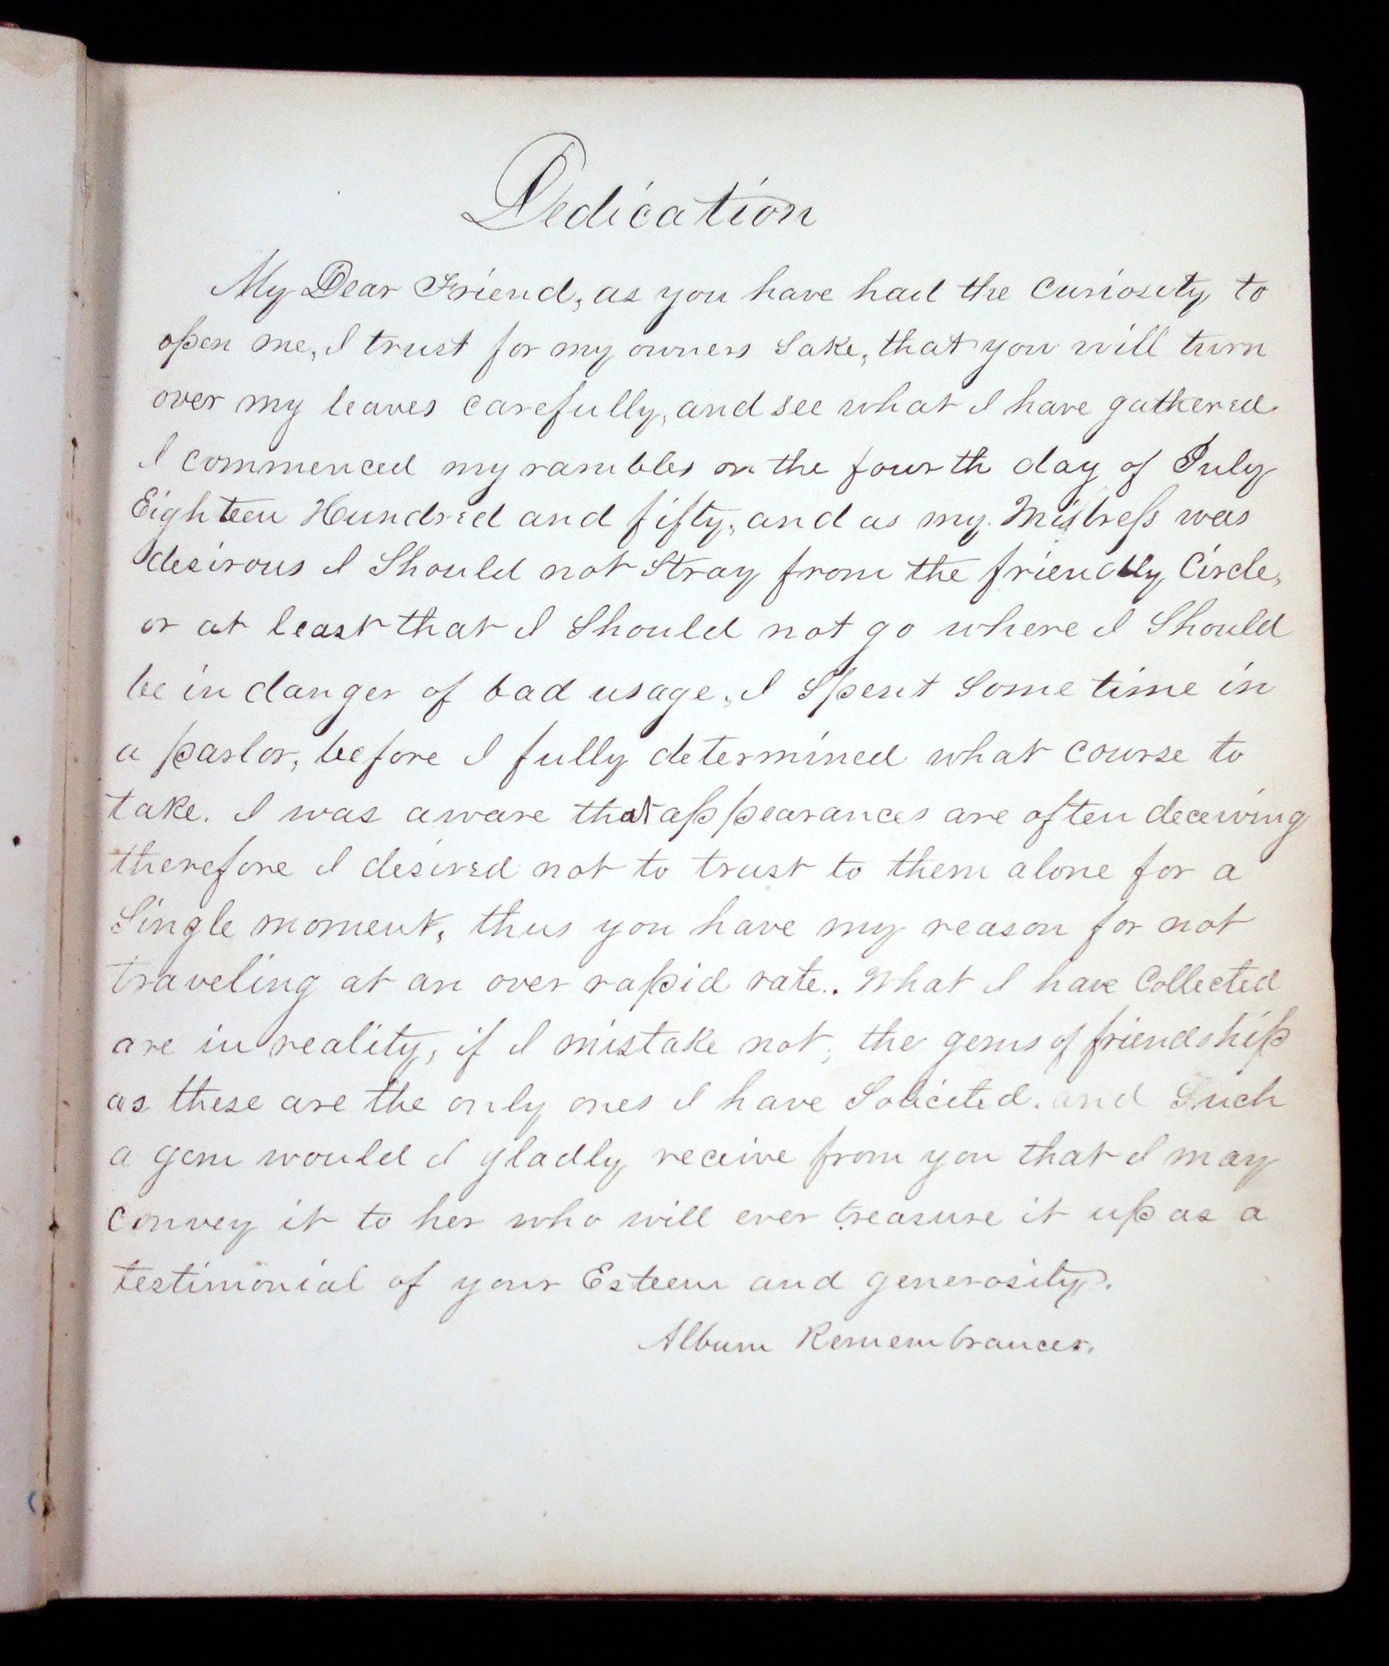 Dedication
My Dear Friend, as you have had the curiosity to
open me, I trust for my owners Sake, that you will turn
over my leaves carefully, and see what I have gathered.
I commenced my rambles on the fourth day of July
Eighteen Hundred and fifty, and as my Mistress was
desirous I Should not Stray from the friendly Circle,
or at least that I Should not go where I Should
be in danger of bad usage, I Spent Some time in
a parlor, before I fully determined what course to
take. I was aware that appearances are often deceiving
therefore I desired not to trust to them alone for a
Single moment, thus you have my reason for not
traveling at an over rapid rate. What I have Collected
are in reality, if I mistake not, the gems of friendship
as these are the only ones I have Solicited. and Such
a gem would I gladly receive from you that I may
convey it to her who will ever treasure it up as a
testimonial of your Esteem and generosity.
Album Remembrancer.